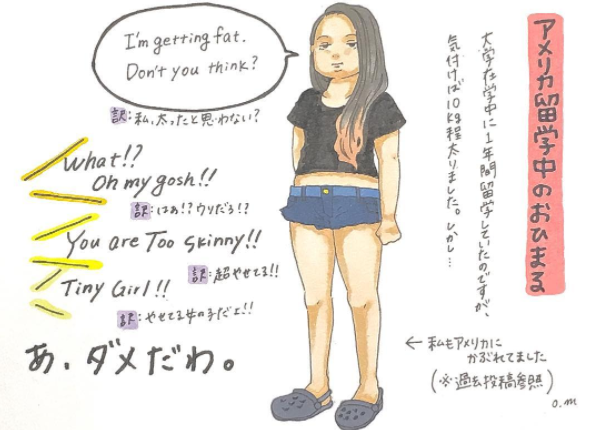 アメリカ留学中のおひまる
大学在学中に1年間留学していたのですが、
気付けば10kg程太りました。しかし…
I'm getting fat.
Don't you think?
訳:私、太ったと思わない?
What!?
Oh my gosh!!
訳:はぁ!?ウソだろ!?
You are Too skinny!!
訳:超やせてる!!
Tiny Girl!!
訳:やせてる女の子だよ!!
あ、ダメだわ。
← 私もアメリカに
かぶれてました
(※過去投稿参照)
o.m